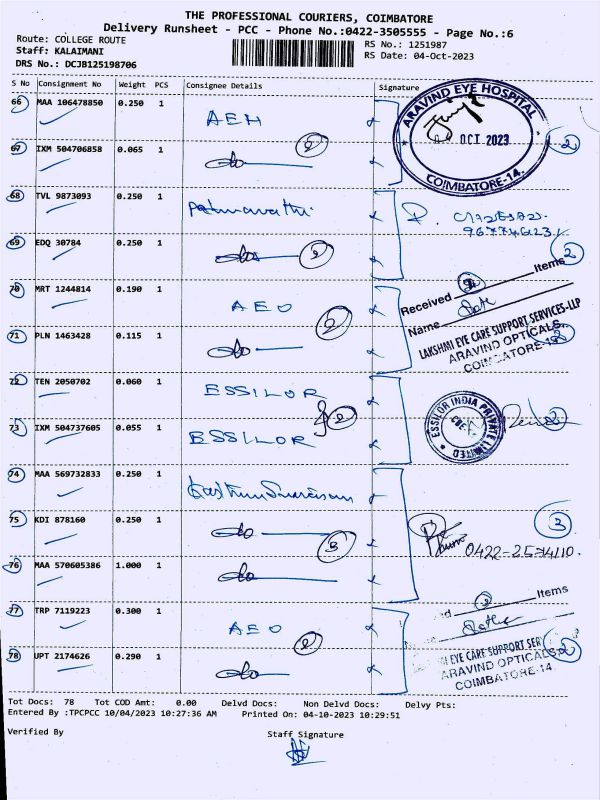 THE PROFESSIONAL COURIERS, COIMBATORE
Delivery Runsheet - PCC - Phone No.:0422-3505555 - Page No.:6
Route: COLLEGE ROUTE
RS No.: 1251987
Staff: KALAIMANI
RS Date: 04-Oct-2023
DRS No.: DCJB125198706
S No Consignment No Weight PCS Consignee Details Signature
66 MAA 106478850 0.250 1 AEH
ARAVIND EYE HOSPITAL
OCT 2023
COIMBATORE-14.
67 IXM 504706858 0.065 1 do 2 2
68 TVL 9873093 0.250 1 Padmavathi
69 EDQ 30784 0.250 1 do 2 2
70 MRT 1244814 0.190 1 AEO 2
Received Items
Name
LAKSHMI EYE CARE SUPPORT SERVICES-LLP
ARAVIND OPTICALS
71 PLN 1463428 0.115 1 do
72 TEN 2050702 0.060 1 ESSILOR 2
ESSILOR INDIA PRIVATE LIMITED
73 IXM 504737605 0.055 1 ESSILOR
74 MAA 569732833 0.250 1
75 KDI 878160 0.250 1 do 3 3
0422-2574110.
76 MAA 570605386 1.000 1 do
77 TRP 7119223 0.300 1 AEO 2
Items
EYE CARE SUPPORT SER
ARAVIND OPTICALS
COIMBATORE-14
78 UPT 2174626 0.290 1 do 2
Tot Docs: 78 Tot COD Amt: 0.00 Delvd Docs: Non Delvd Docs: Delvy Pts:
Entered By :TPCPCC 10/04/2023 10:27:36 AM Printed On: 04-10-2023 10:29:51
Verified By Staff Signature